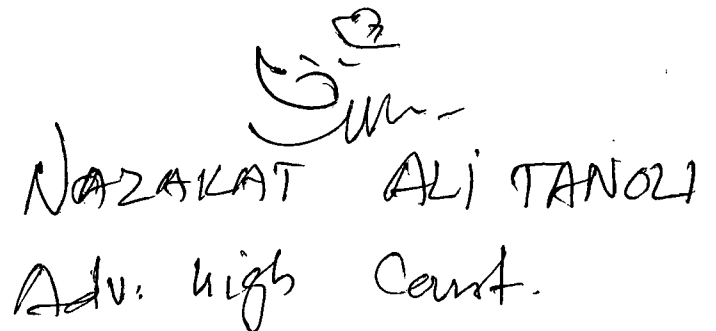 NAZAKAT ALI TANOLI
Adv. High Court.